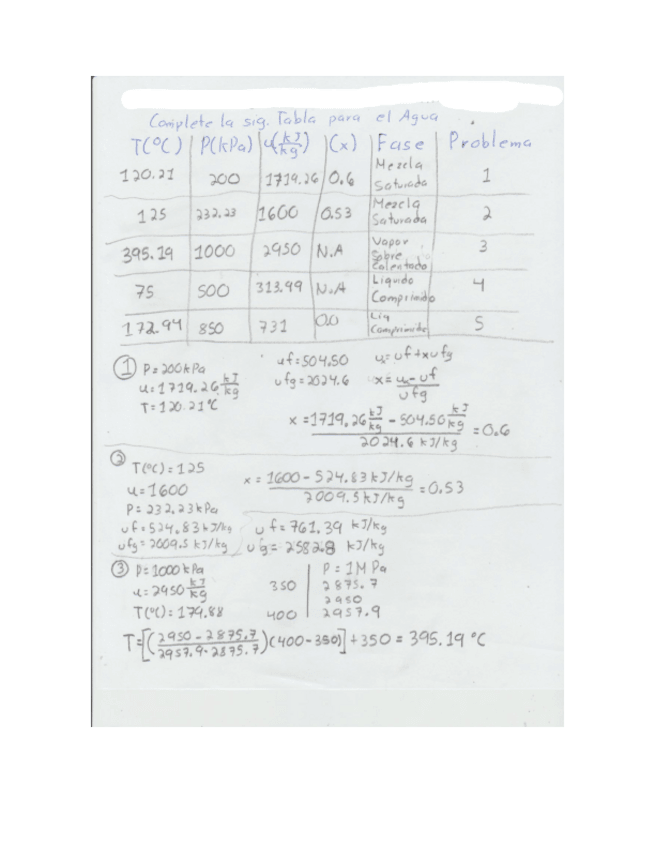 Complete la sig. Tabla para el Agua
T(°C) P(kPa) u(kJ/kg) (x) Fase Problema
120.21 200 1719.26 0.6 Mezcla Saturada 1
125 232.23 1600 0.53 Mezcla Saturada 2
395.19 1000 2950 N.A Vapor Sobre Calentado 3
75 500 313.99 N.A Liquido Comprimido 4
172.94 850 731 0.0 Liq Comprimido 5
① P=200kPa uf=504.50 u=uf+xufg
u=1719.26 kJ/kg ufg=2024.6 x=u-uf/ufg
T=120.21°C
x=1719.26 kJ/kg - 504.50 kJ/kg / 2024.6 kJ/kg = 0.6
② T(°C)=125
u=1600 x=1600-524.83kJ/kg / 2009.5kJ/kg = 0.53
P=232.23kPa
uf=524.83kJ/kg uf=761.39 kJ/kg
ufg=2009.5 kJ/kg ug=2582.8 kJ/kg
③ P=1000kPa P=1MPa
u=2950 kJ/kg 350 2875.7
2950
T(°C)=179.88 400 2957.9
T=[(2950-2875.7/2957.9-2875.7)(400-350)]+350=395.19°C